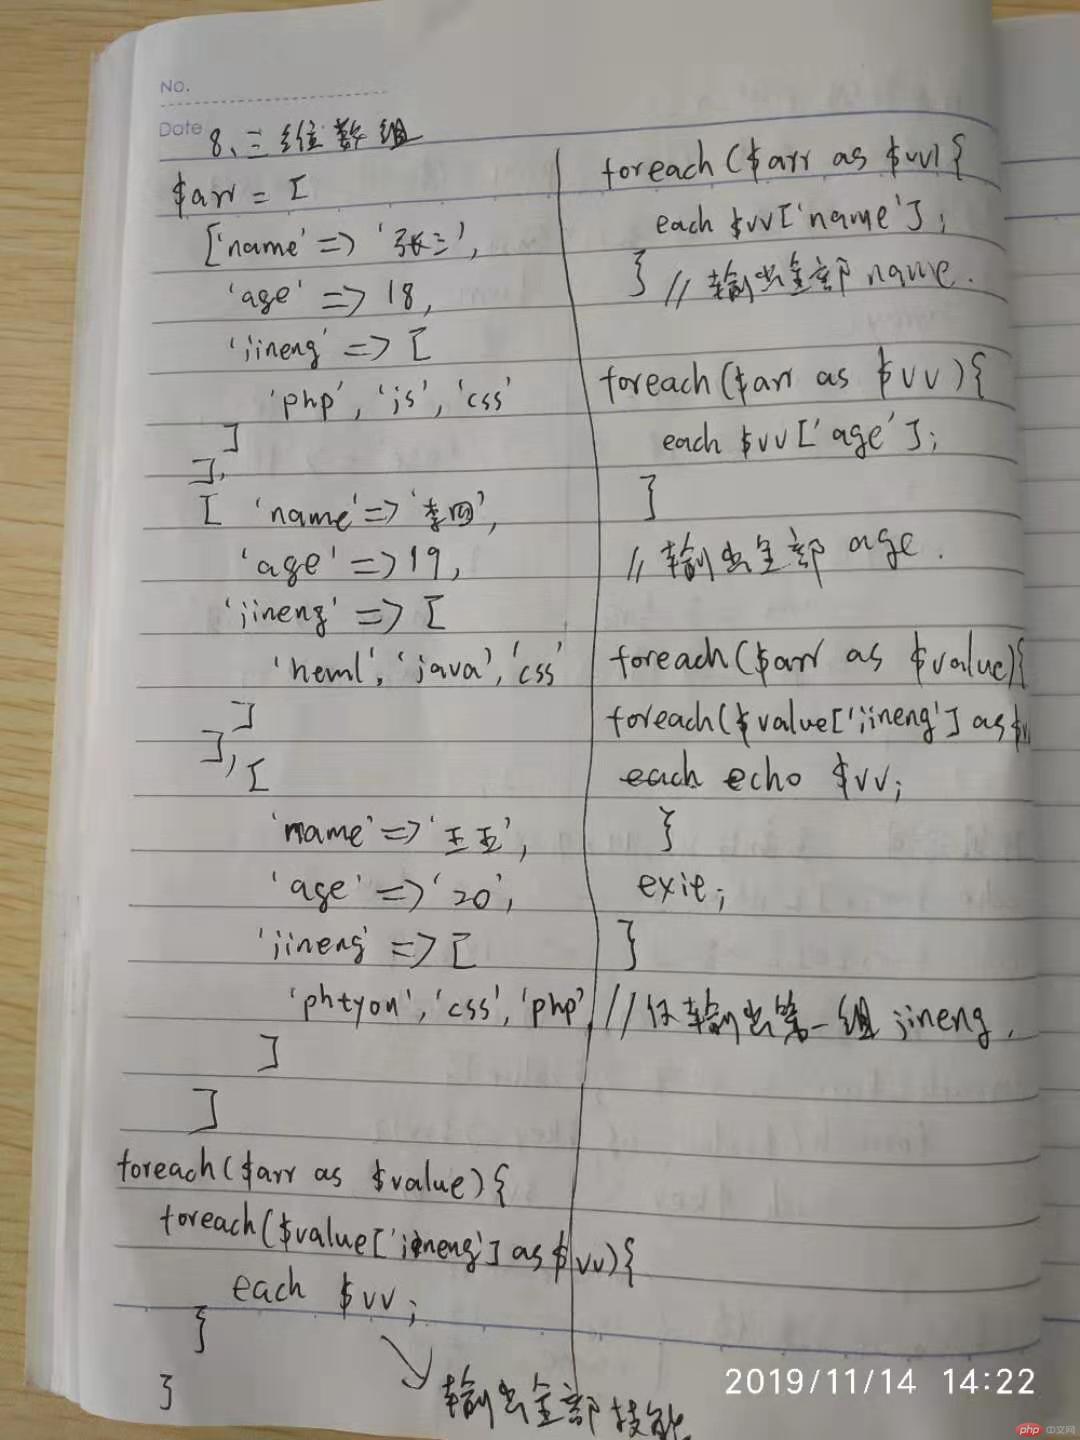 No.
Date
8、三维数组
$arr = [
['name' => '张三',
'age' => 18,
'jineng' => [
'php', 'js', 'css'
]
],
[ 'name' => '李四',
'age' => 19,
'jineng' => [
'heml', 'java', 'css'
]
], [
'name' => '王五',
'age' => '20',
'jineng' => [
'phtyon', 'css', 'php',
]
]
foreach($arr as $value){
foreach($value['jineng'] as $vv){
each $vv;
}
}
输出全部技能
foreach($arr as $vv){
each $vv['name'];
} // 输出全部 name.
foreach($arr as $vv){
each $vv['age'];
}
// 输出全部 age.
foreach($arr as $value){
foreach($value['jineng'] as $v
each echo $vv;
}
exie;
}
//仅输出第一组 jineng.
2019/11/14 14:22
php 中文网